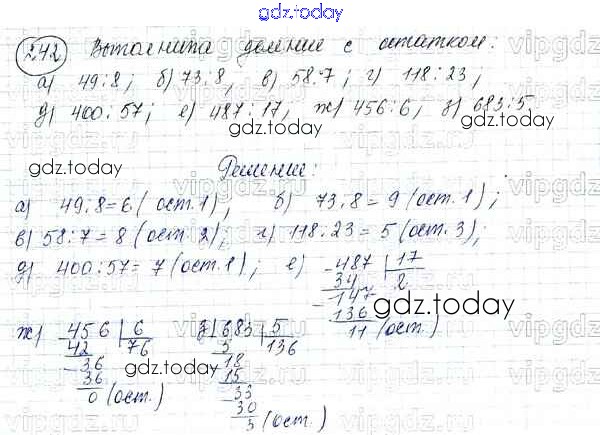 gdz.today
242 Выполните деление с остатком:
а) 49:8; б) 73:8, в) 58:7; г) 118:23,
д) 400:57; е) 487:17, ж) 456:6, з) 683:5.
gdz.today
gdz.today
Решение:
а) 49:8=6(ост.1), б) 73:8=9(ост.1);
в) 58:7=8(ост.2); г) 118:23=5(ост.3);
д) 400:57=7(ост.1); е) 487 17
34 2
147
gdz.today
136
11 (ост.)
ж) 456 6 з) 683 5
42 76 5 136
36 18
36 15
0 (ост.) 33
30
3 (ост.)
gdz.today